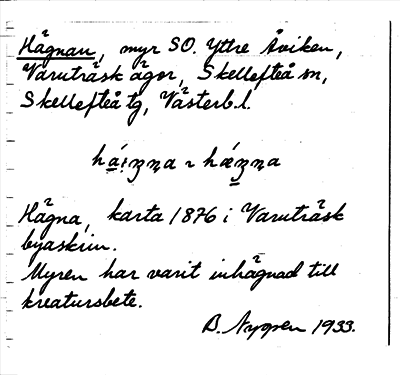 Hägnan, myr SO. Yttre Åviken,
Varuträsk ägor, Skellefteå sn,
Skellefteå tg, Västerb. l.
Hägna, karta 1876 i Varuträsk
byaskrin.
Myren har varit inhägnad till
kreatursbete.
B. Nygren 1933.